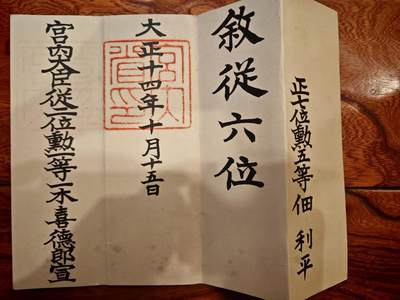 正七位勲五等佃 利平
敘従六位
大正十四年十月十五日
宮内大臣従二位勲一等一木喜德郎宣